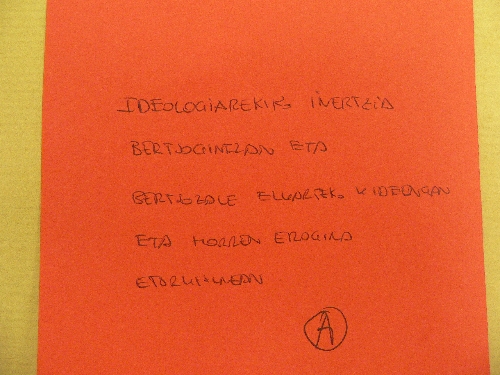 IDEOLOGIAREKIKO INERTZIA
BERTSOGINTZAN ETA
BERTSOZALE ELKARTEKO KIDEENGAN
ETA HORREN ERAGINA
ETORKIZUNEAN
A